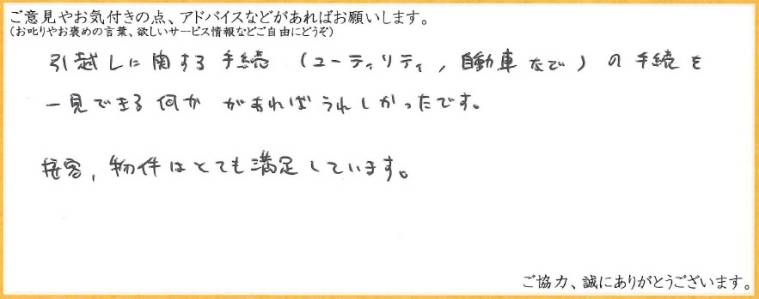 ご意見やお気付きの点、アドバイスなどがあればお願いします。
(お叱りやお褒めの言葉、欲しいサービス情報などご自由にどうぞ)
引越しに関する手続 (ユーティリティ, 自動車など) の手続を
一見できる何か があればうれしかったです。
接客, 物件はとても満足しています。
ご協力、誠にありがとうございます。